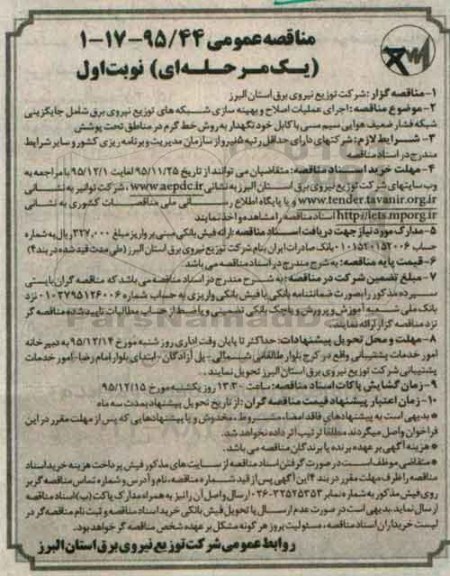 مناقصه عمومی ۹۵/۴۴-۱۷-۱
(یک مرحله‌ای) نوبت اول
۱-مناقصه گزار: شرکت توزیع نیروی برق استان البرز
۲-موضوع مناقصه: اجرای عملیات اصلاح و بهینه سازی شبکه های توزیع نیروی برق شامل جایگزینی
شبکه فشار ضعیف هوایی سیم مسی با کابل خودنگهدار به روش خط گرم در مناطق تحت پوشش
۳- شرایط لازم: شرکتهای دارای حداقل رتبه ۵ نیرو از سازمان مدیریت و برنامه ریزی کشور و سایر شرایط
مندرج در اسناد مناقصه
۴-مهلت خرید اسناد مناقصه: متقاضیان می توانند از تاریخ ۹۵/۱۱/۲۵ لغایت ۹۵/۱۲/۱ با مراجعه به
وب سایتهای شرکت توزیع نیروی برق استان البرز به نشانی www.aepdc.ir، شرکت توانیر به نشانی
www.tender.tavanir.org.ir و یا پایگاه اطلاع رسانی ملی مناقصات کشوری به نشانی
http://iets.mporg.ir اسناد مناقصه را مشاهده و اخذ نمایند
۵-مدارک مورد نیاز جهت دریافت اسناد مناقصه: ارائه فیش بانکی مبنی بر واریز مبلغ ۳۲۷,۰۰۰ ریال به شماره
حساب ۰۱۰۱۵۲۰۱۵۲۰۰۶ بانک صادرات ایران بنام شرکت توزیع نیروی برق استان البرز (طی مدت قید شده در بند ۴)
۶-قیمت پایه مناقصه: به شرح مندرج در اسناد مناقصه می باشد
۷-مبلغ تضمین شرکت در مناقصه: به شرح مندرج در اسناد مناقصه می باشد که مناقصه گران بایستی
سپرده مذکور را بصورت ضمانتنامه بانکی یا فیش بانکی واریزی به حساب شماره ۰۱۰۳۷۹۵۱۲۶۰۰۶ نزد
بانک ملی شعبه آموزش و پرورش و یا چک بانکی تضمینی و یا ضبط از حساب مطالبات تایید شده مناقصه گر
نزد مناقصه گزار ارائه نمایند.
۸-مهلت و محل تحویل پیشنهادات: حداکثر تا پایان وقت اداری روز شنبه مورخ ۹۵/۱۲/۱۴ به دبیرخانه
امور خدمات پشتیبانی واقع در کرج بلوار طالقانی شمالی - پل آزادگان - ابتدای بلوار امام رضا - امور خدمات
پشتیبانی شرکت توزیع نیروی برق استان البرز تحویل نمایند.
۹-زمان گشایش پاکات اسناد مناقصه: ساعت ۱۳:۳۰ روز یکشنبه مورخ ۹۵/۱۲/۱۵
۱۰-زمان اعتبار پیشنهاد قیمت مناقصه گران: از تاریخ تحویل پیشنهاد بمدت سه ماه
* بدیهی است به پیشنهادهای فاقد امضاء، مشروط، مخدوش و یا پیشنهادهایی که پس از مهلت مقرر در این
فراخوان واصل میگردند مطلقا ترتیب اثر داده نخواهد شد.
* هزینه آگهی بر عهده برنده یا برندگان مناقصه می باشد.
* متقاضی موظف است در صورت گرفتن اسناد مناقصه از سایت های مذکور فیش پرداخت هزینه خرید اسناد
مناقصه را ظرف مهلت مقرر در بند ۴ این آگهی پس از قید شماره مناقصه، نام و آدرس و شماره تماس مناقصه گر بر
روی فیش مذکور به شماره نمابر ۰۲۶-۳۲۵۲۵۳۵۳ ارسال و اصل آن را نیز به همراه مدارک پاکت (ب) اسناد مناقصه
ارسال نماید. بدیهی است در صورت عدم ارسال یا تحویل فیش بانکی خرید اسناد مناقصه و ثبت نام مناقصه گر در
لیست خریداران اسناد مناقصه، مسئولیت بروز هر گونه مشکل بر عهده شخص مناقصه گر خواهد بود.
روابط عمومی شرکت توزیع نیروی برق استان البرز